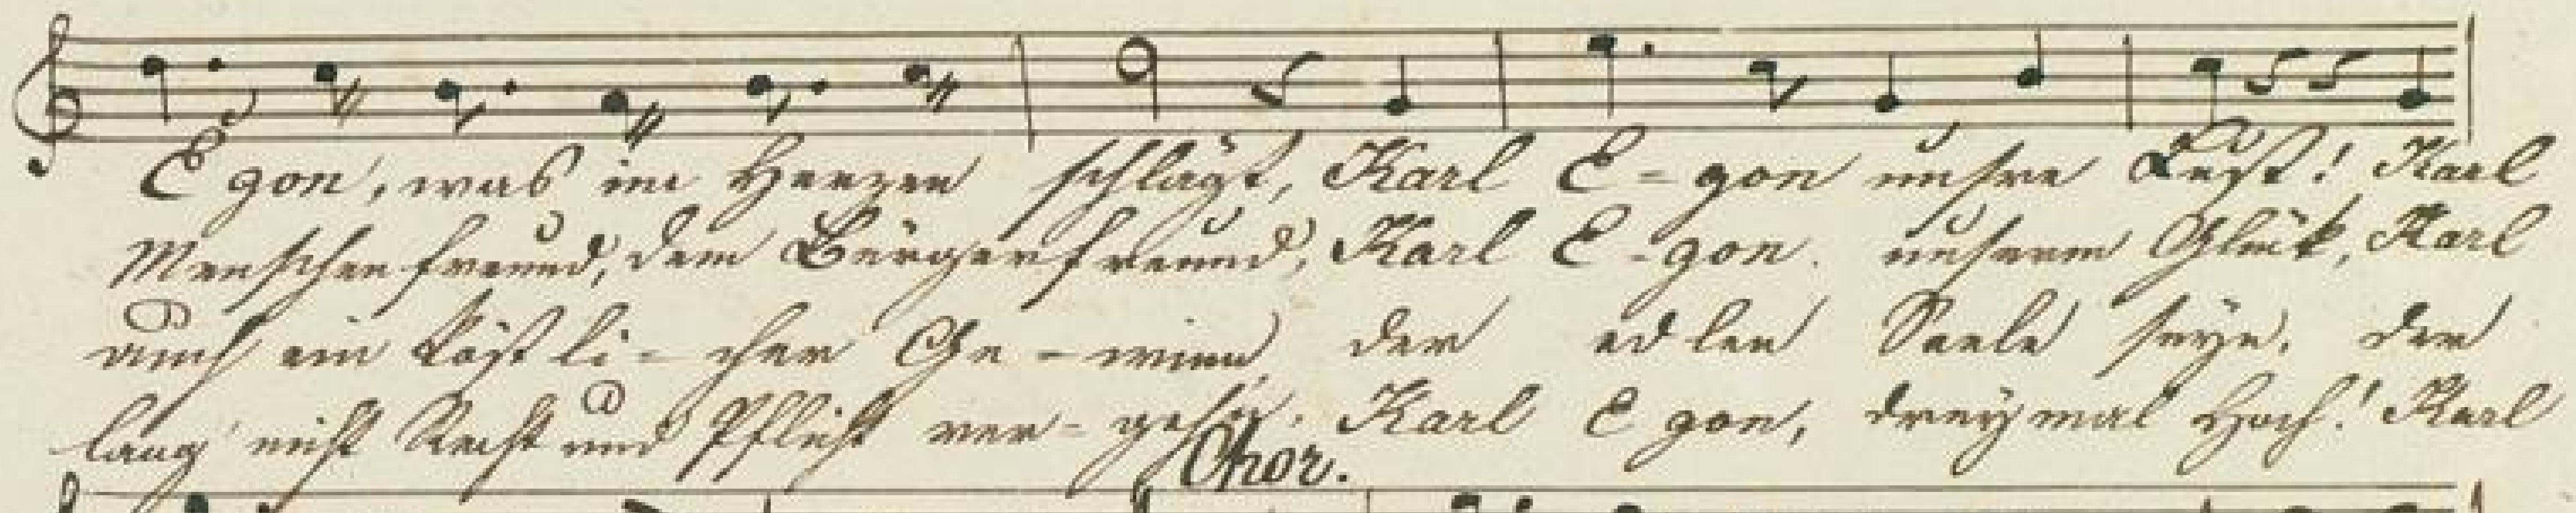 Egon, was im Herzen schlägt, Karl E-gon unsre Lust! Karl
Menschenfreund, dem Bürgerfreund, Karl E-gon. unserm Glük, Karl
auch ein köstli-cher Ge-winn, der edlen Seele seyn, der
lang nicht Recht und Pflicht ver- Karl Egon, dreymal Hoch! Karl
Chor.